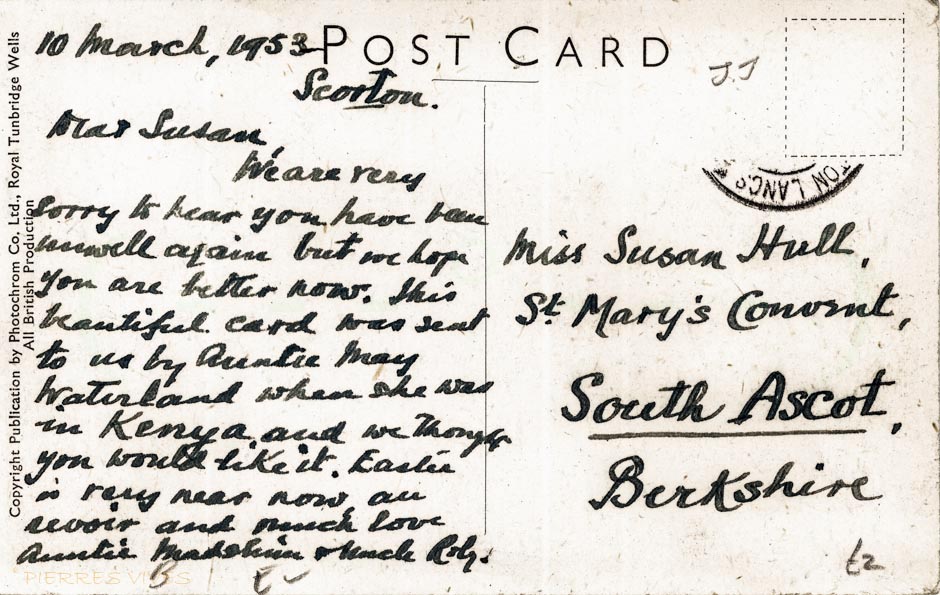 POST CARD
10 March, 1953
Scorton.
Dear Susan,
We are very
sorry to hear you have been
unwell again but we hope
you are better now. This
beautiful card was sent
to us by Auntie May
Waterland when she was
in Kenya, and we thought
you would like it. Easter
is very near now, au
revoir and much love
Auntie & Uncle Roly.
JJ
TON LANCS
Miss Susan Hull,
St. Mary's Convent,
South Ascot,
Berkshire
£2
Copyright Publication by Photochrom Co. Ltd., Royal Tunbridge Wells
All British Production